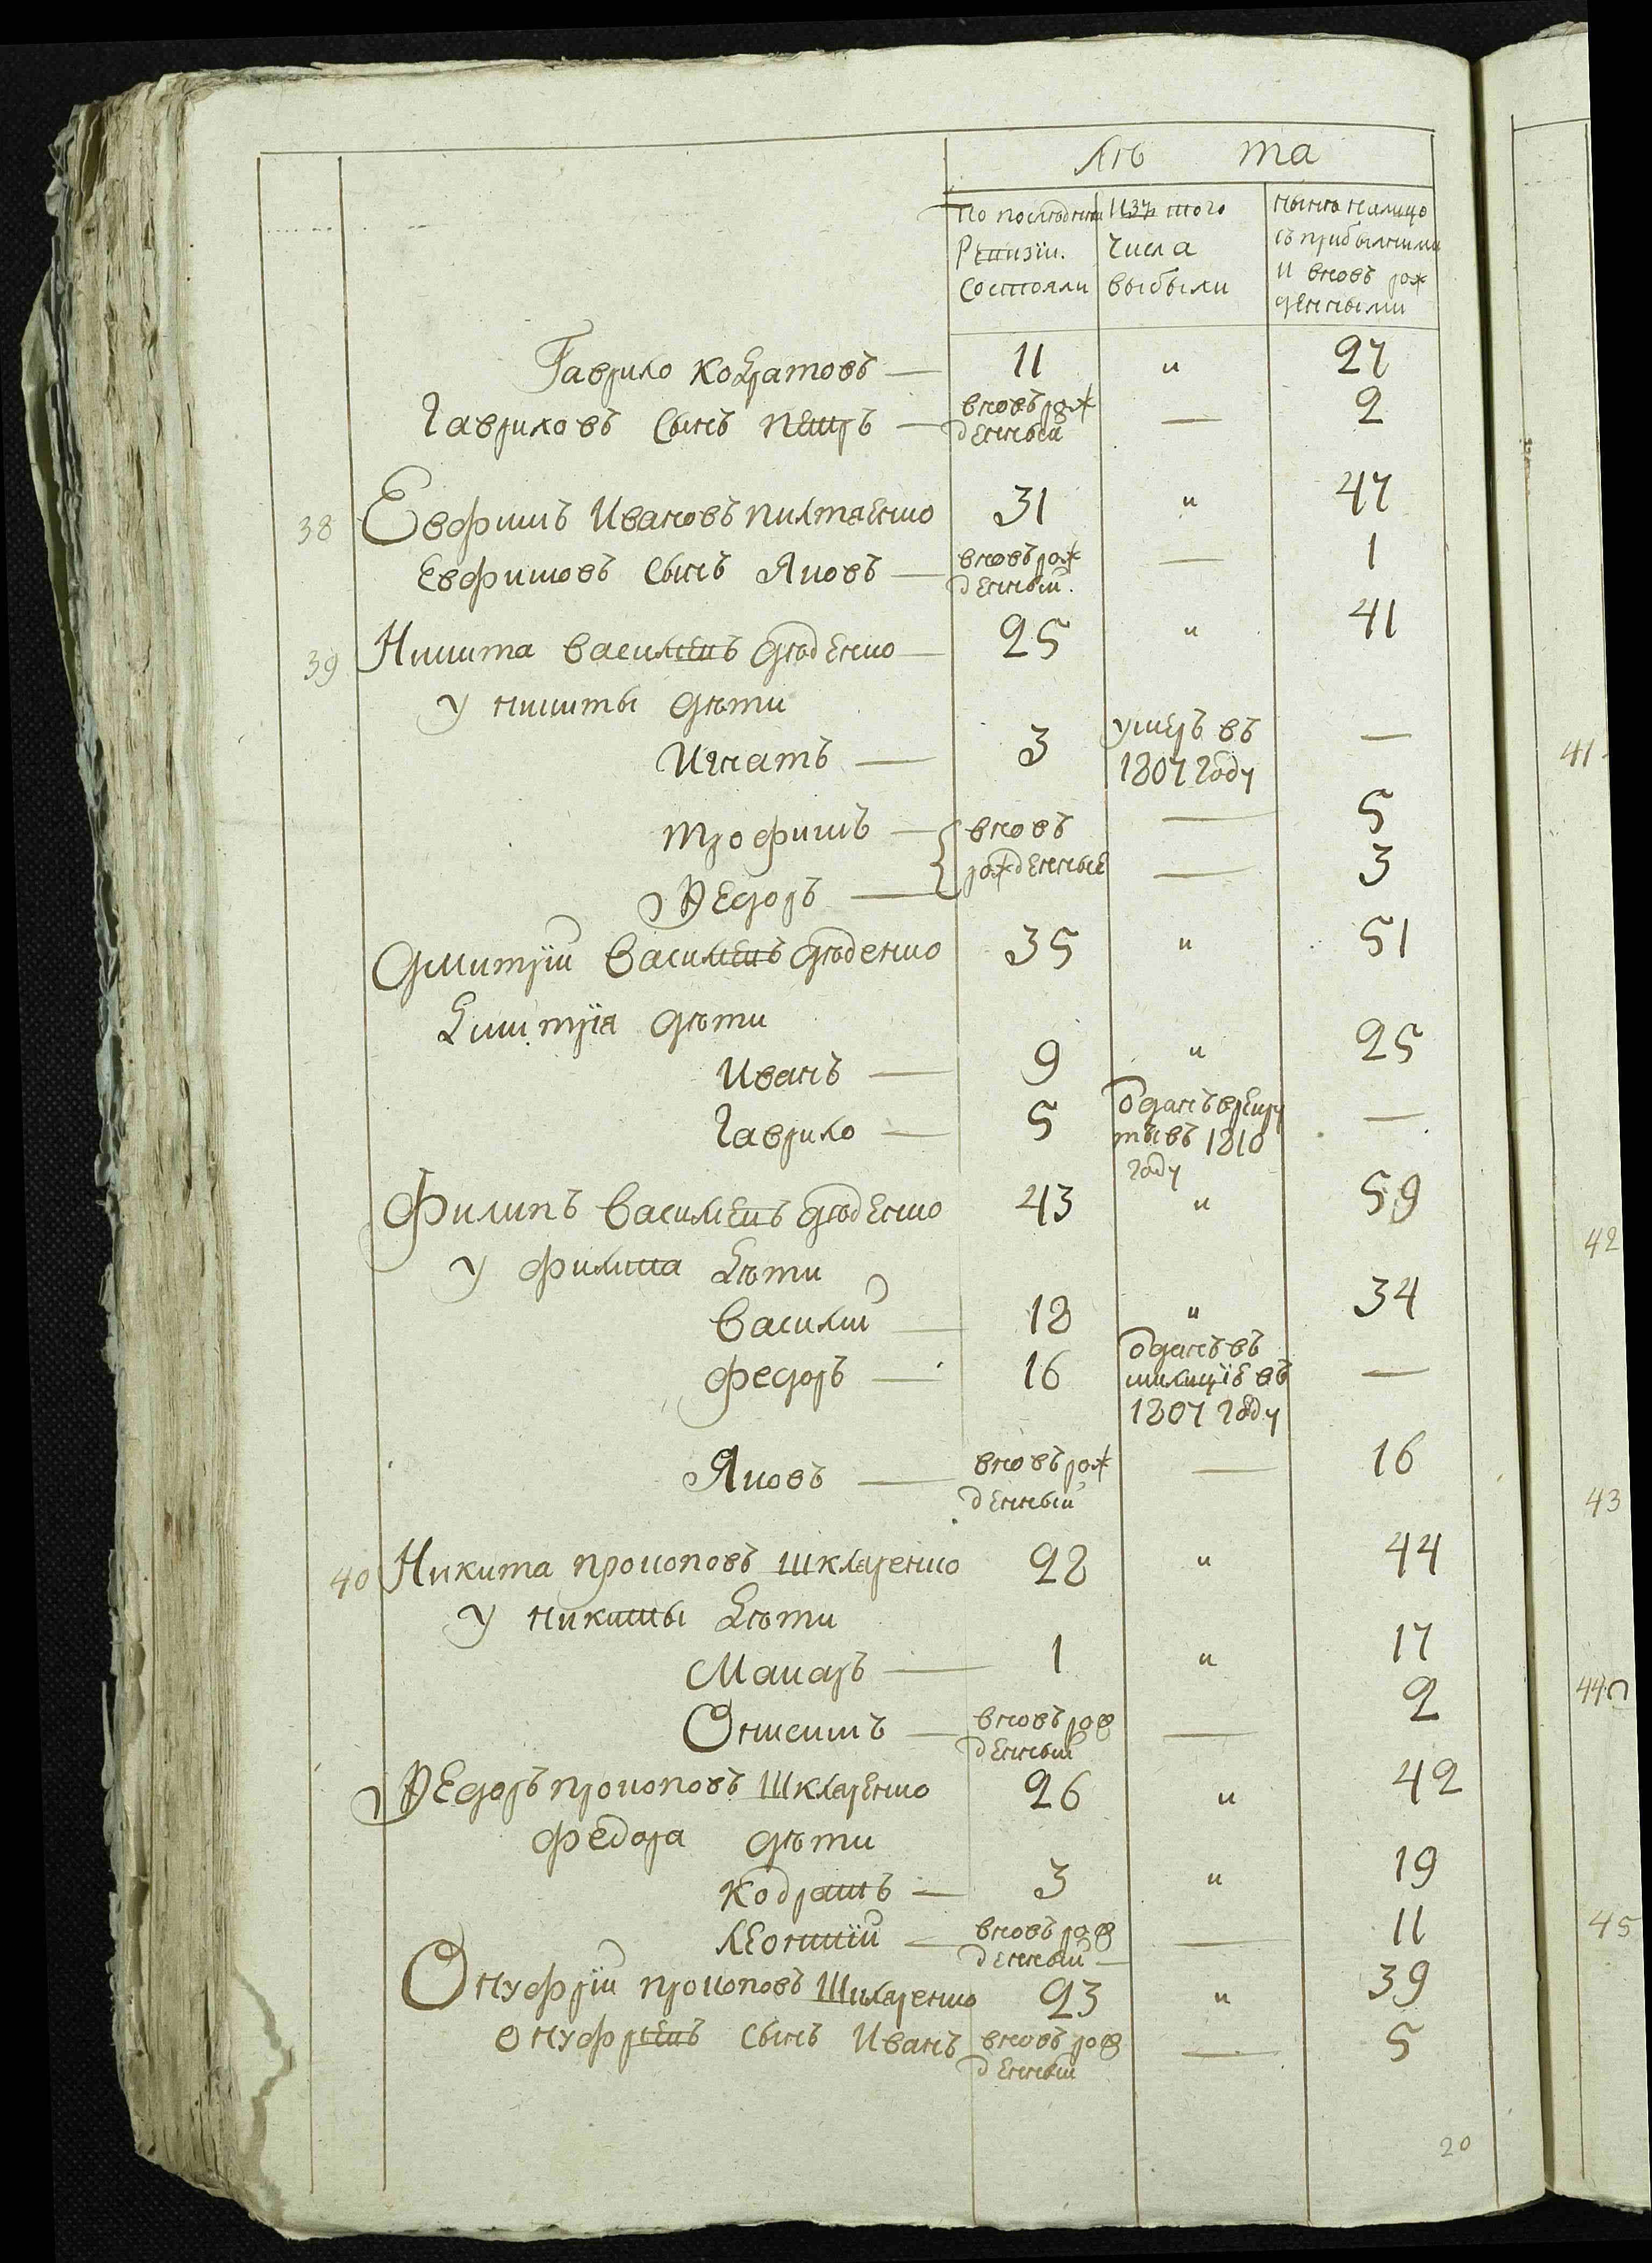 лѣ та
По последней Ревизіи. Состояли
Изъ того числа выбыли
нынѣ налицо съ прибылыми и вновь рожденными
Гаврило Кодратовъ — 11 " 27
Гавриловъ Сынъ петръ — вновьрожденный — 2
38 Евфимъ Ивановъ пилтаенко 31 " 47
Евфимовъ Сынъ Яковъ — вновьрожденный. — 1
39 Никита Васильевъ дѣденко — 25 " 41
у никиты дѣти
Игнатъ — 3 умеръ въ 1807 году —
трофимъ — вновь — 5
Ѳедоръ — рожденные — 3
Дмитрій Васильевъ дѣденко 35 " 51
дмитрія дѣти
Иванъ — 9 " 25
Гаврило — 5 одан въ рекруты въ 1810 году —
Филипъ Васильевъ дѣденко 43 " 59
у филипа дѣти
Василий — 18 " 34
федоръ — 16 оданъ въ милиціѣ въ 1807 году —
Яковъ — вновьрожденный — 16
40 Никита прокоповъ шкляренко 28 " 44
у никиты дѣти
Макаръ — 1 " 17
вновьрожденный — 2
Ѳедоръ прокоповъ Шкляренко 26 " 42
федора дѣти
Кодратъ — 3 " 19
леонтій — вновьрожденный — 11
Онуфрій прокоповъ Шкляренко 23 " 39
онуфріевъ Сынъ Иванъ вновьрожденный — 5
20
41
42
43
44
45